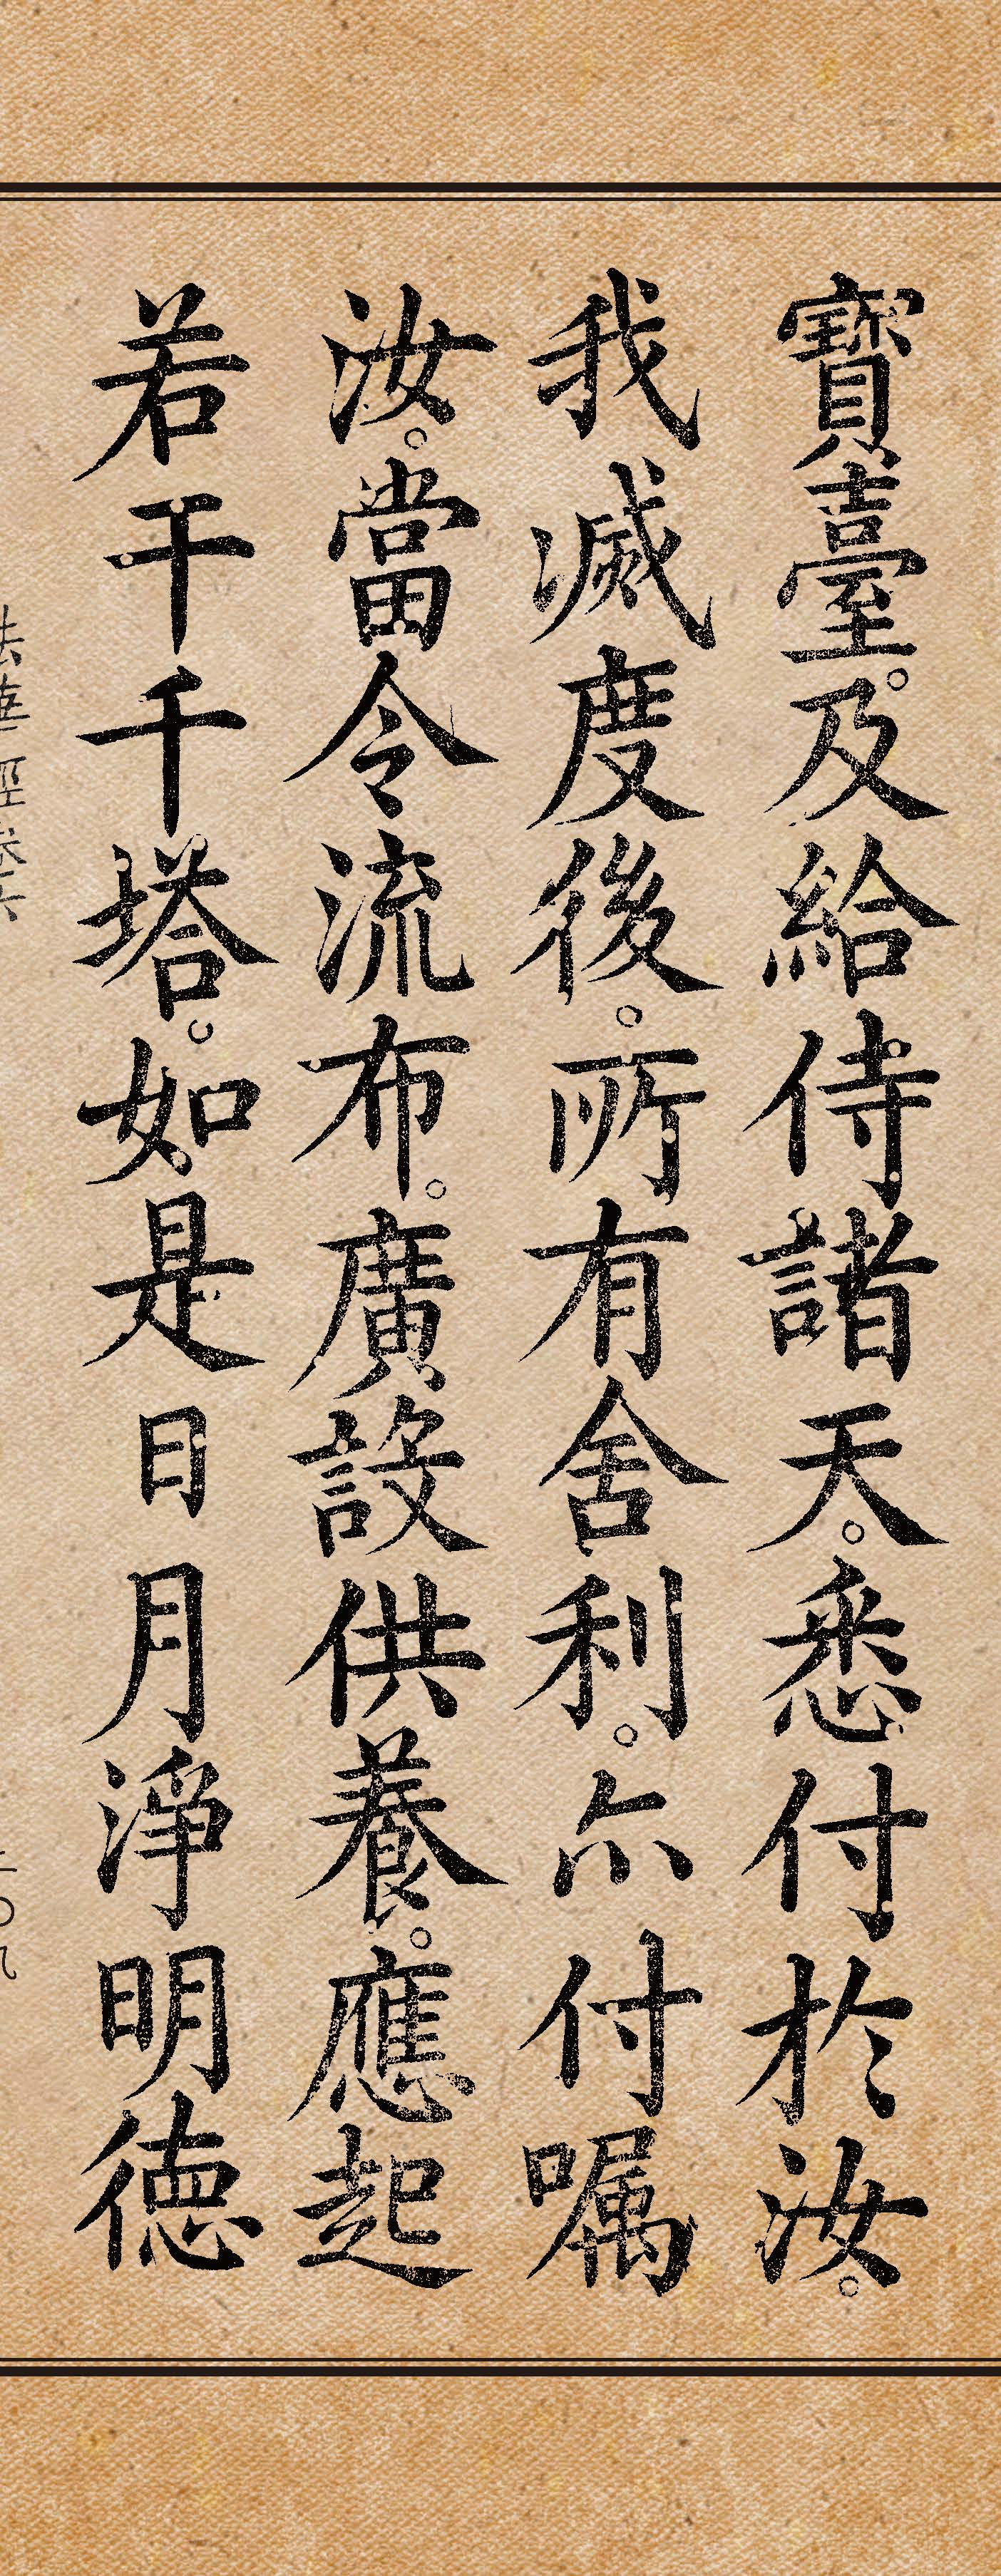 寶臺。及給侍諸天。悉付於汝。
我滅度後。所有舍利。尒付嘱
汝。當令流布。廣設供養。應起
若干千塔。如是日月淨明德
法華經卷六